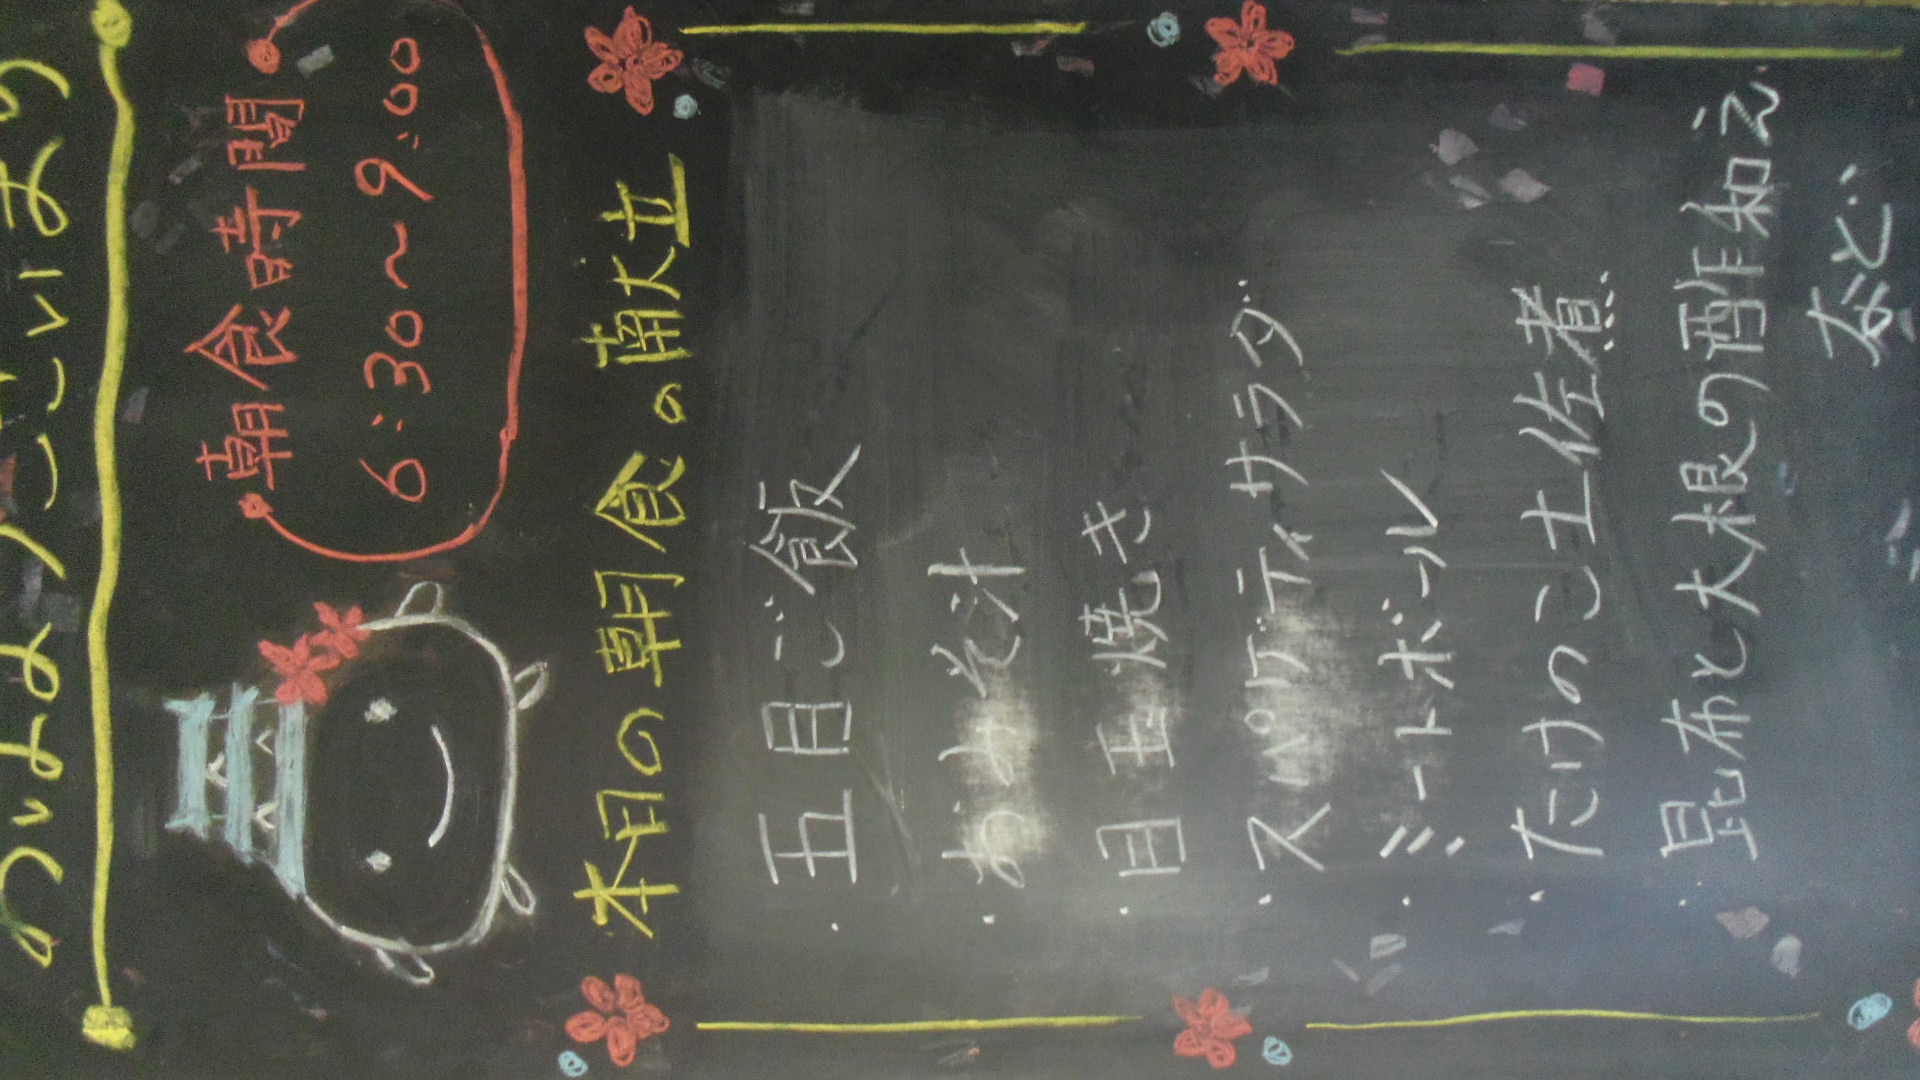 おはようございます
朝食時間
6:30〜9:00
本日の朝食の献立
・五目ご飯
・おみそ汁
・目玉焼き
・スパゲティサラダ
・ミートボール
・たけのこ土佐煮
・昆布と大根の酢和え
など